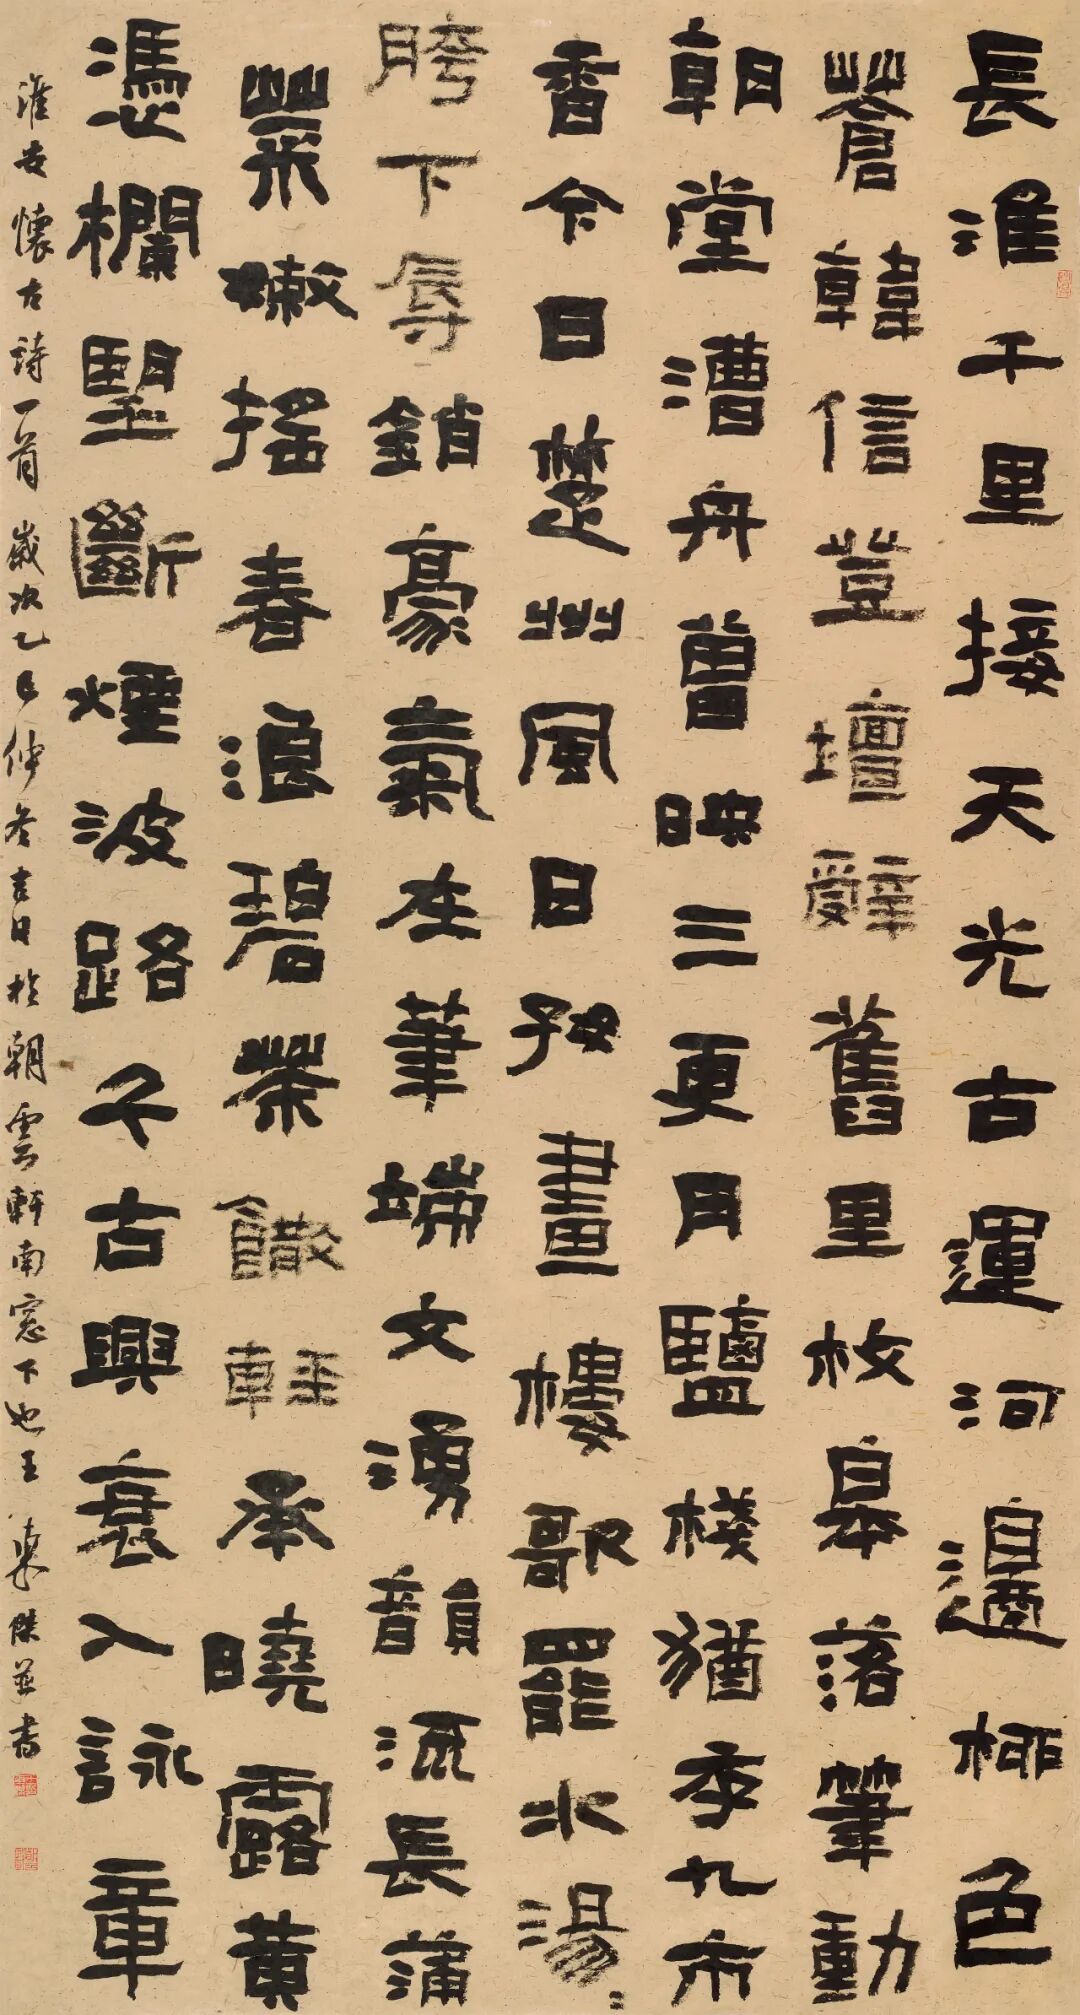 長淮千里接天光古運河邊柳色
蒼韓信登壇辭舊里枚皋落筆動
朝堂漕舟曾映三更月鹽棧猶九市
香今日楚州風日好畫樓歌罷水湯〻
胯下辱銷豪氣在筆端文湧韻流長蒲
菜嫩搖春浪碧茶饊輕承曉露黃
憑欄望斷煙波路千古興衰入詠章
淮安懷古詩一首歲次乙巳仲冬吉日於朝雲軒南窓下也王傑並書